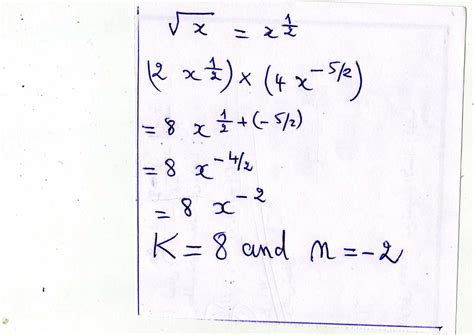 √x = x^1/2
(2 x^1/2) × (4 x^-5/2)
= 8 x^1/2 + (-5/2)
= 8 x^-4/2
= 8 x^-2
K = 8 and n = -2